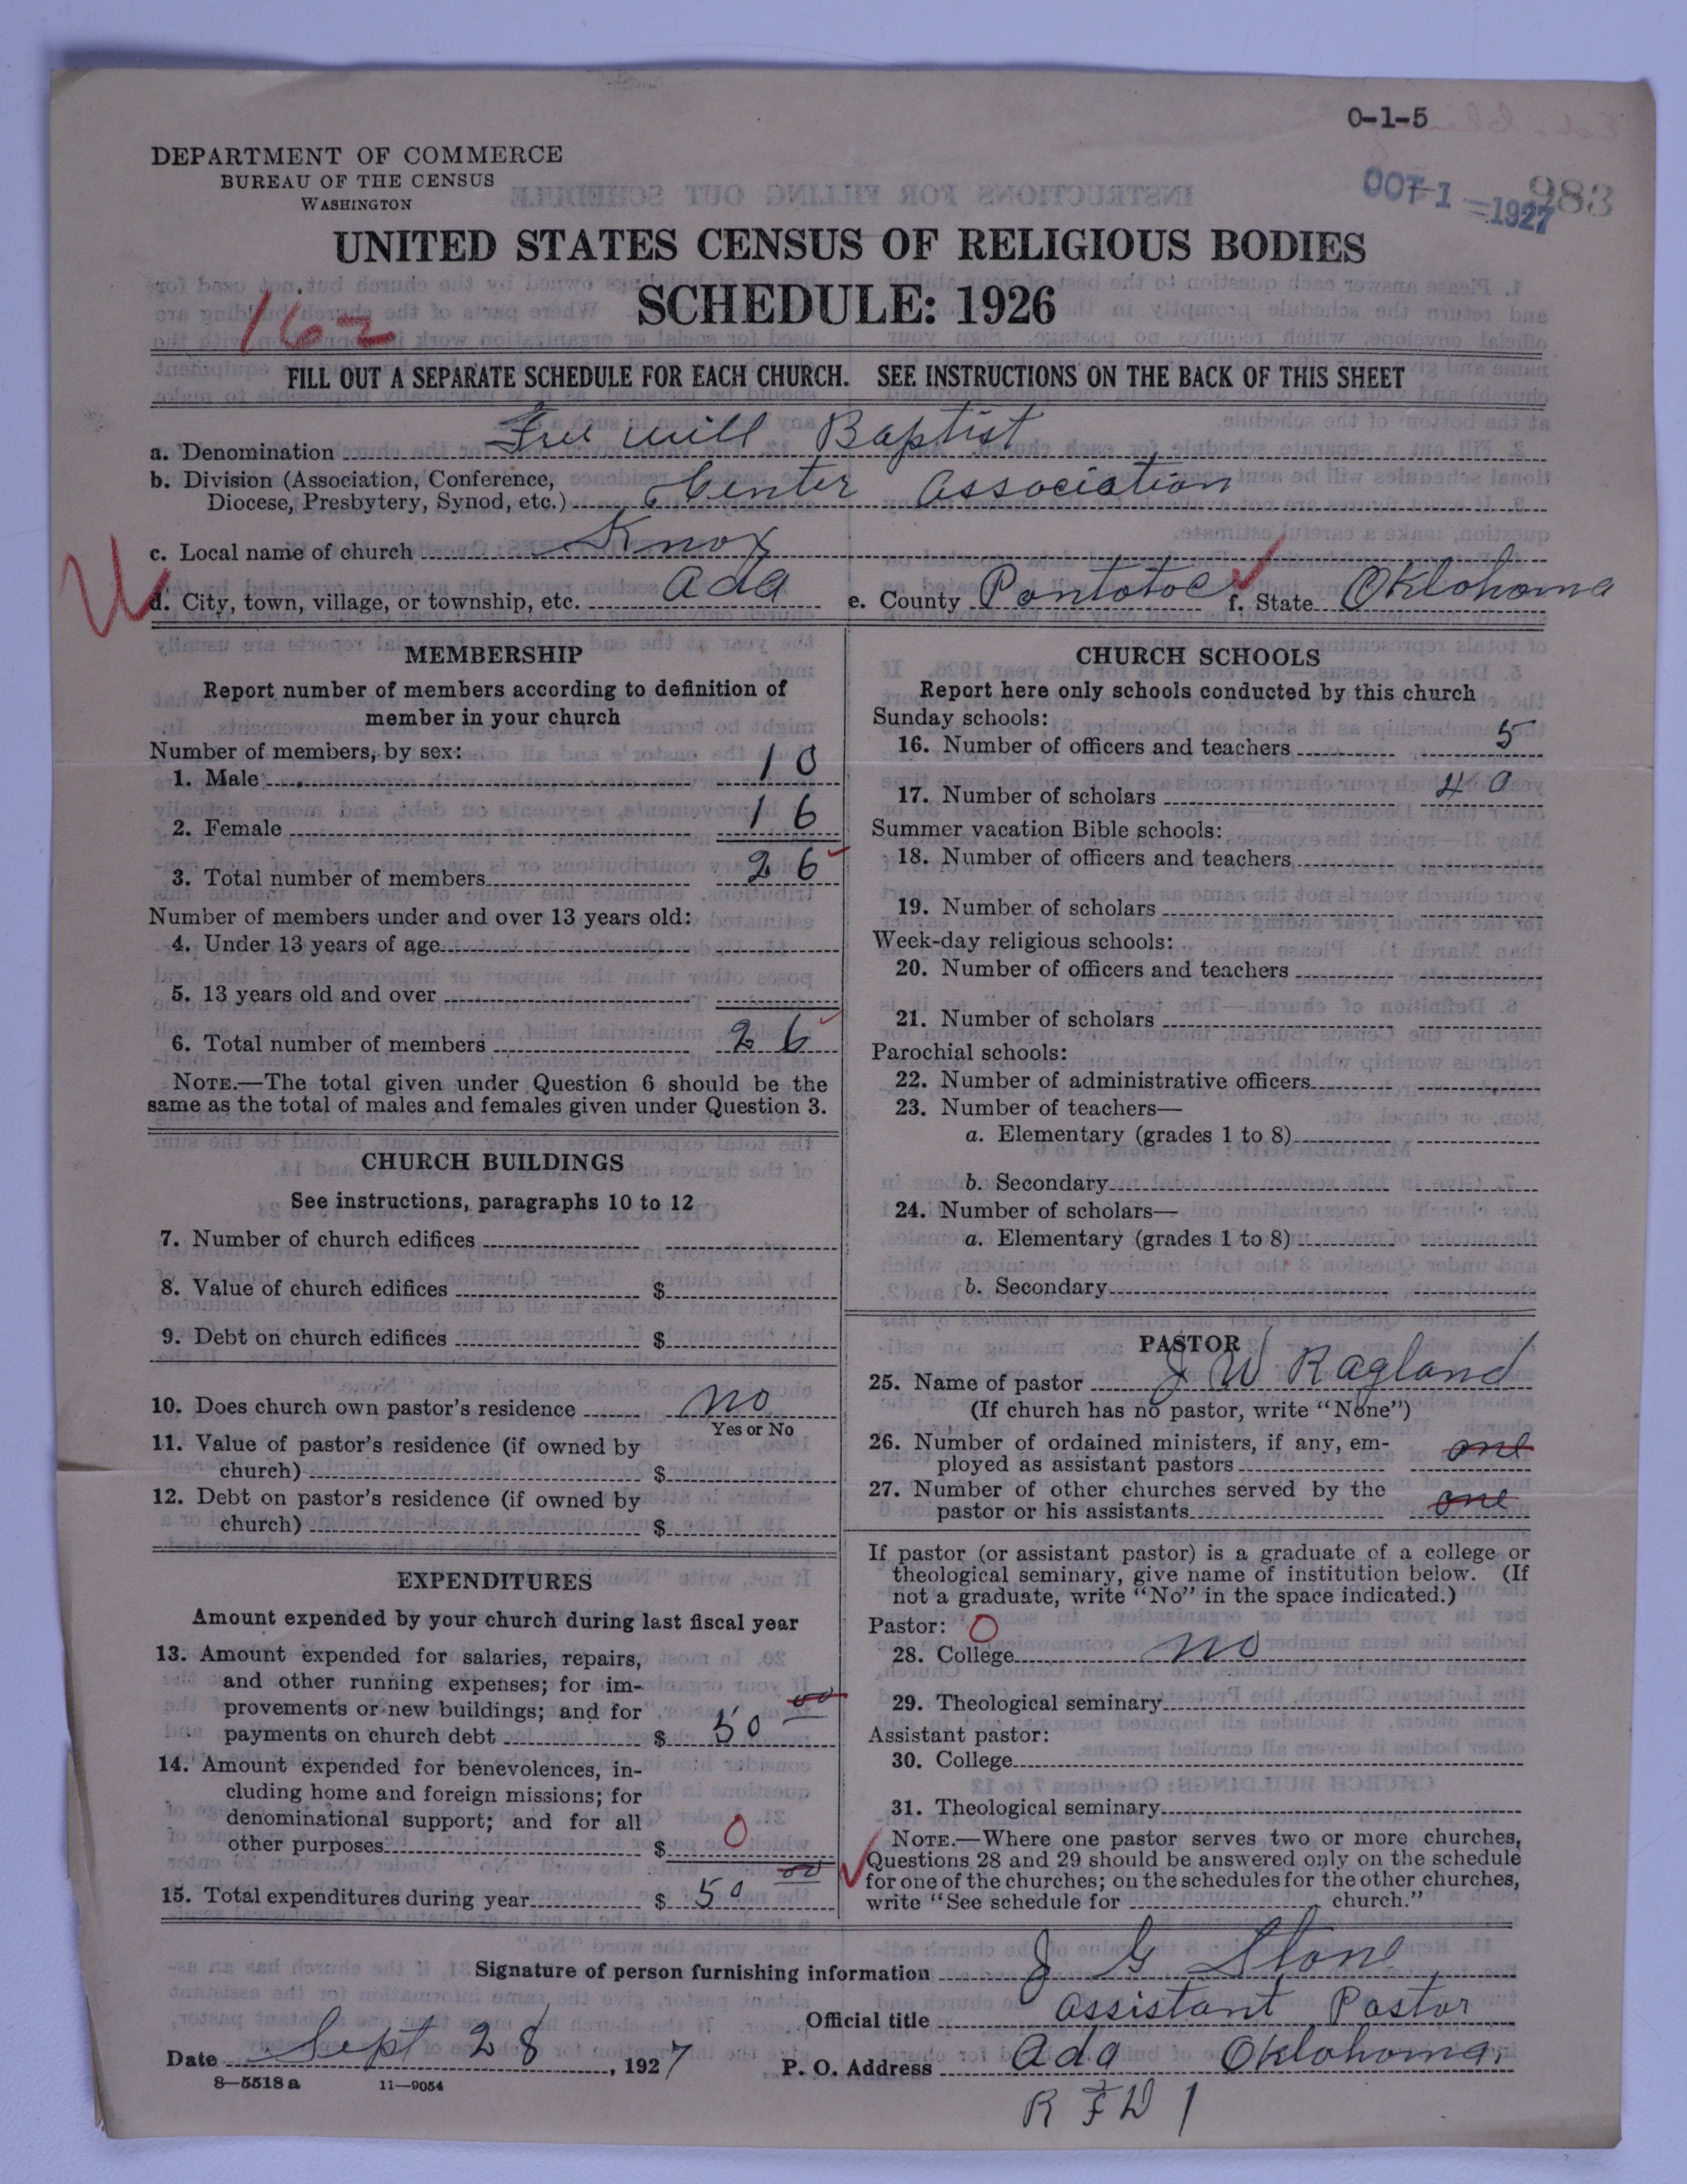 0-1-5
DEPARTMENT OF COMMERCE
BUREAU OF THE CENSUS
WASHINGTON
OCT 1 - 1927
983
UNITED STATES CENSUS OF RELIGIOUS BODIES
SCHEDULE: 1926
162
FILL OUT A SEPARATE SCHEDULE FOR EACH CHURCH. SEE INSTRUCTIONS ON THE BACK OF THIS SHEET
a. Denomination Free Will Baptist
b. Division (Association, Conference,
Diocese, Presbytery, Synod, etc.) Center Association
c. Local name of church Knox
d. City, town, village, or township, etc. Ada e. County Pontotoc f. State Oklohoma
MEMBERSHIP
Report number of members according to definition of
member in your church
Number of members, by sex:
1. Male 10
2. Female 16
3. Total number of members 26
Number of members under and over 13 years old:
4. Under 13 years of age
5. 13 years old and over
6. Total number of members 26
NOTE.—The total given under Question 6 should be the
same as the total of males and females given under Question 3.
CHURCH BUILDINGS
See instructions, paragraphs 10 to 12
7. Number of church edifices
8. Value of church edifices $
9. Debt on church edifices $
10. Does church own pastor's residence no
Yes or No
11. Value of pastor's residence (if owned by
church) $
12. Debt on pastor's residence (if owned by
church) $
EXPENDITURES
Amount expended by your church during last fiscal year
13. Amount expended for salaries, repairs,
and other running expenses; for im-
provements or new buildings; and for
payments on church debt $ 50 00
14. Amount expended for benevolences, in-
cluding home and foreign missions; for
denominational support; and for all
other purposes $ 0
15. Total expenditures during year $ 50 00
CHURCH SCHOOLS
Report here only schools conducted by this church
Sunday schools:
16. Number of officers and teachers 5
17. Number of scholars 40
Summer vacation Bible schools:
18. Number of officers and teachers
19. Number of scholars
Week-day religious schools:
20. Number of officers and teachers
21. Number of scholars
Parochial schools:
22. Number of administrative officers
23. Number of teachers—
a. Elementary (grades 1 to 8)
b. Secondary
24. Number of scholars—
a. Elementary (grades 1 to 8)
b. Secondary
PASTOR
25. Name of pastor J W Ragland
(If church has no pastor, write "None")
26. Number of ordained ministers, if any, em-
ployed as assistant pastors one
27. Number of other churches served by the
pastor or his assistants one
If pastor (or assistant pastor) is a graduate of a college or
theological seminary, give name of institution below. (If
not a graduate, write "No" in the space indicated.)
Pastor: O
28. College no
29. Theological seminary
Assistant pastor:
30. College
31. Theological seminary
NOTE.—Where one pastor serves two or more churches,
Questions 28 and 29 should be answered only on the schedule
for one of the churches; on the schedules for the other churches,
write "See schedule for church."
Signature of person furnishing information J G Stone
Official title assistant Pastor
Date Sept 28, 1927 P. O. Address Ada Oklohoma.
8—5518a 11—9054
R F D 1